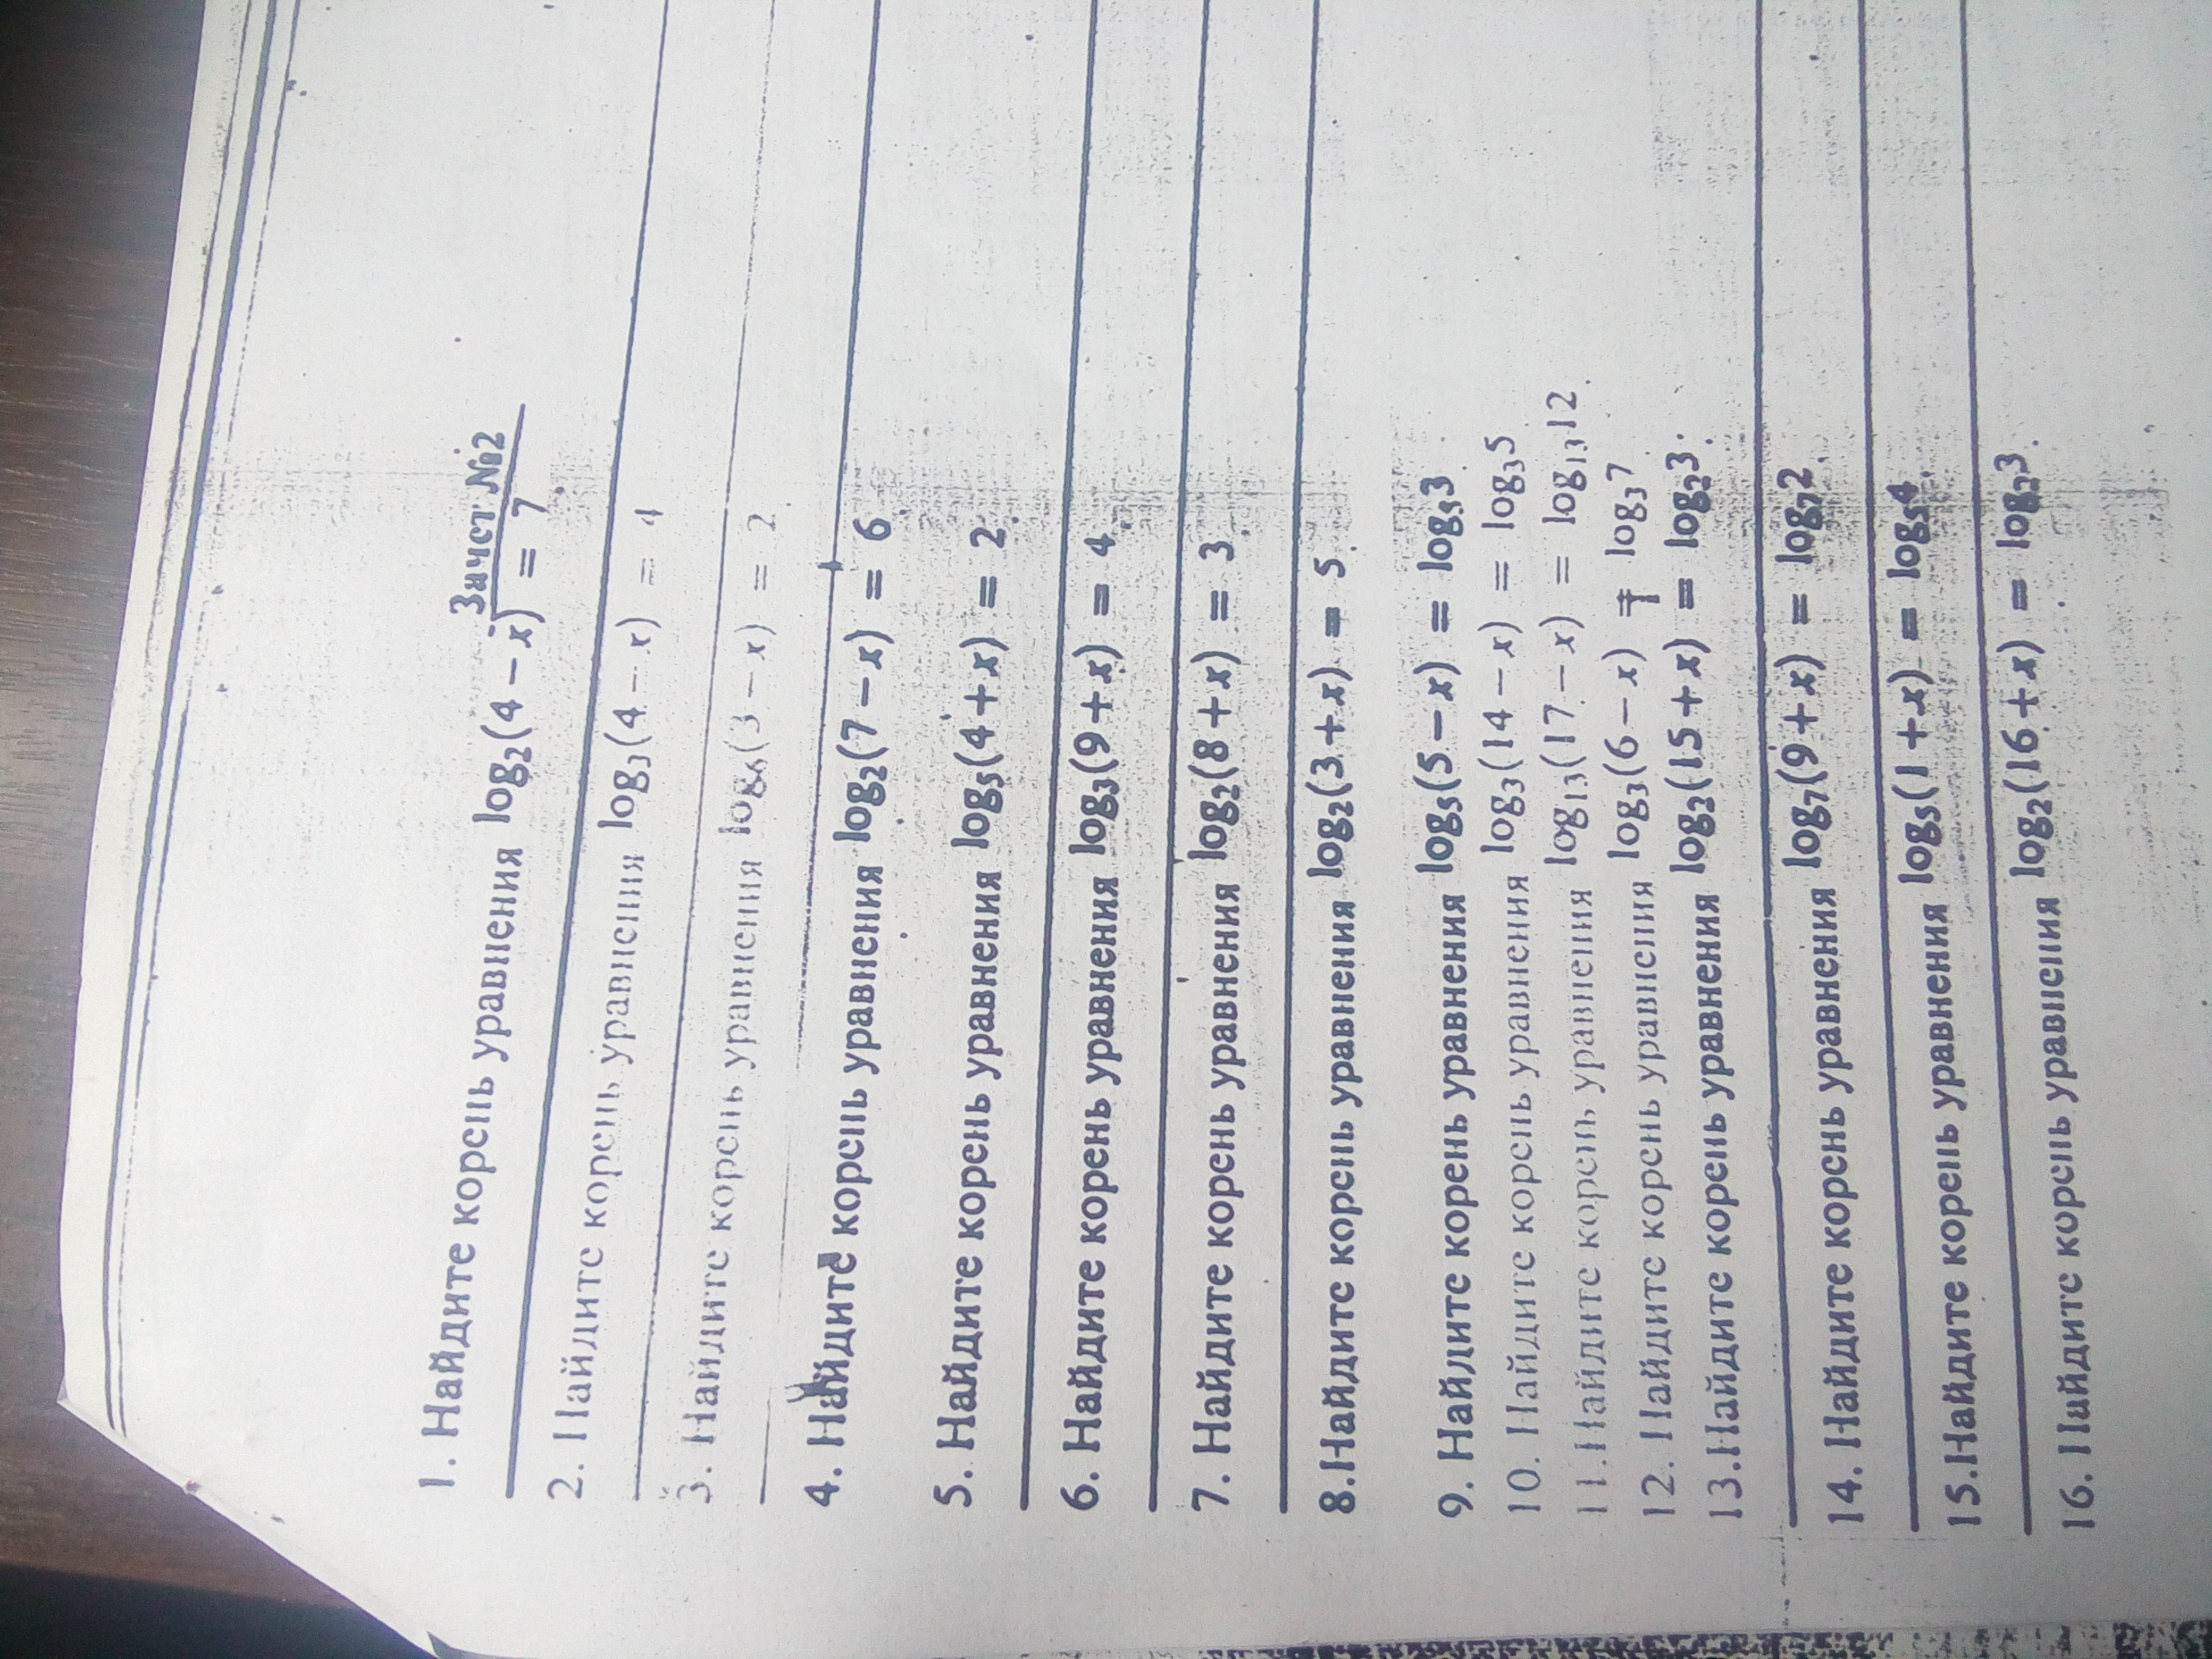 Зачет №2
1. Найдите корень уравнения log₂(4 − x) = 7.
2. Найдите корень уравнения log₃(4 − x) = 4
3. Найдите корень уравнения log₆(3 − x) = 2
4. Найдите корень уравнения log₂(7 − x) = 6
5. Найдите корень уравнения log₅(4 + x) = 2.
6. Найдите корень уравнения log₃(9 + x) = 4.
7. Найдите корень уравнения log₂(8 + x) = 3.
8.Найдите корень уравнения log₂(3 + x) = 5.
9. Найдите корень уравнения log₅(5 − x) = log₅3.
10. Найдите корень уравнения log₃(14 − x) = log₃5
11.Найдите корень уравнения log₁₃(17 − x) = log₁₃12.
12. Найдите корень уравнения log₃(6 − x) = log₃7
13.Найдите корень уравнения log₂(15 + x) = log₂3.
14. Найдите корень уравнения log₇(9 + x) = log₇2.
15.Найдите корень уравнения log₅(1 + x) = log₅4.
16. Найдите корень уравнения log₂(16 + x) = log₂3.